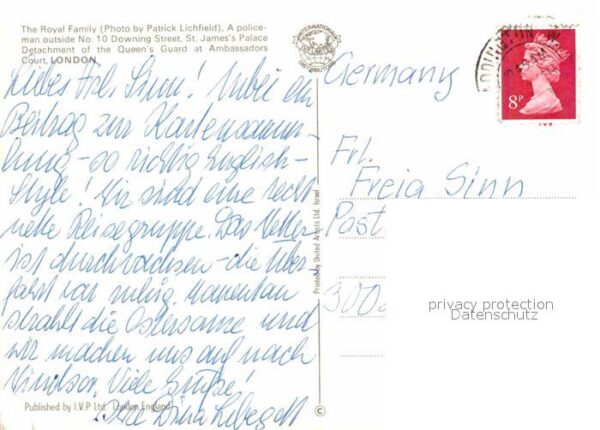 The Royal Family (Photo by Patrick Lichfield), A police-
man outside No. 10 Downing Street, St. James's Palace
Detachment of the Queen's Guard at Ambassadors
Court, LONDON.
Liebes Frl. Sinn! Anbei ein
Beitrag zur Kartensamm-
lung - so richtig English-
Style! Wir sind eine recht
nette Reisegruppe. Das Wetter
ist durchwachsen - die Über-
fahrt war ruhig. Momentan
strahlt die Ostersonne und
wir machen uns auf nach
Windsor. Viele Grüße!
Ihre
Published by I.V.P Ltd. London England
Printed by United Artists Ltd. Israel
©
Germany
8P
Frl.
Freia Sinn
Past.
300
privacy protection
Datenschutz